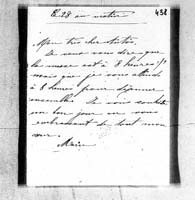 438
E 28 au matin
Mon très cher
Je veux vous dire que
la messe est à 8 heures ½
mais que je vous attends
à 8 heures pour déjeuner
ensemble. Je vous souhaite
un bon jour en vous
embrassant de tout mon
Marie